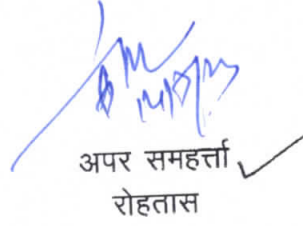 अपर समहर्त्ता
रोहतास